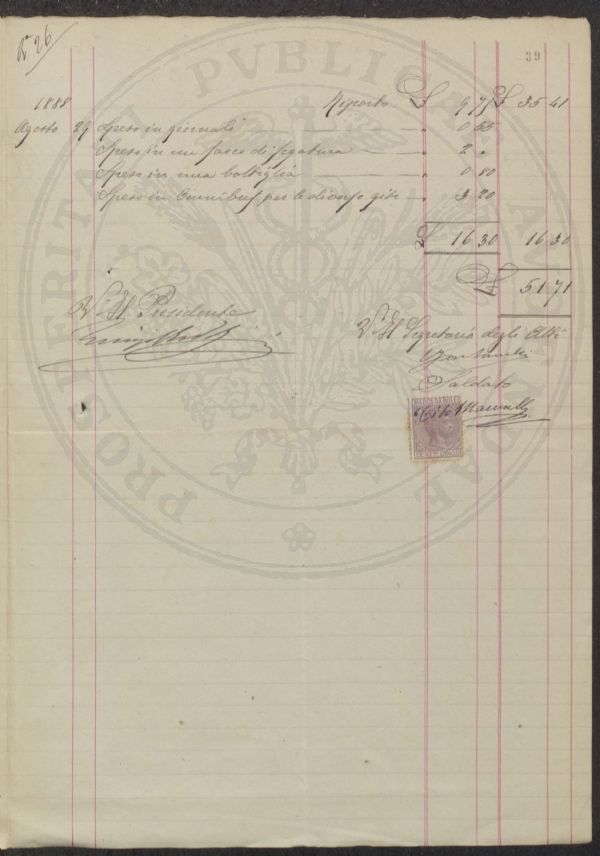 N° 26
39
1888 Riporto £ 9 75 £ 35 41
Agosto 29 Speso in giornali " 0 55
Speso in un sacco di segatura " 2 "
Speso in una bottiglia " 0 80
Speso in Omnibus per le diverse gite " 3 20
£ 16 30 16 30
£ 51 71
V° Il Presidente
V° Il Segretario degli Atti
Saldato
PROSPERITATI PVBLICAE AVGENDAE